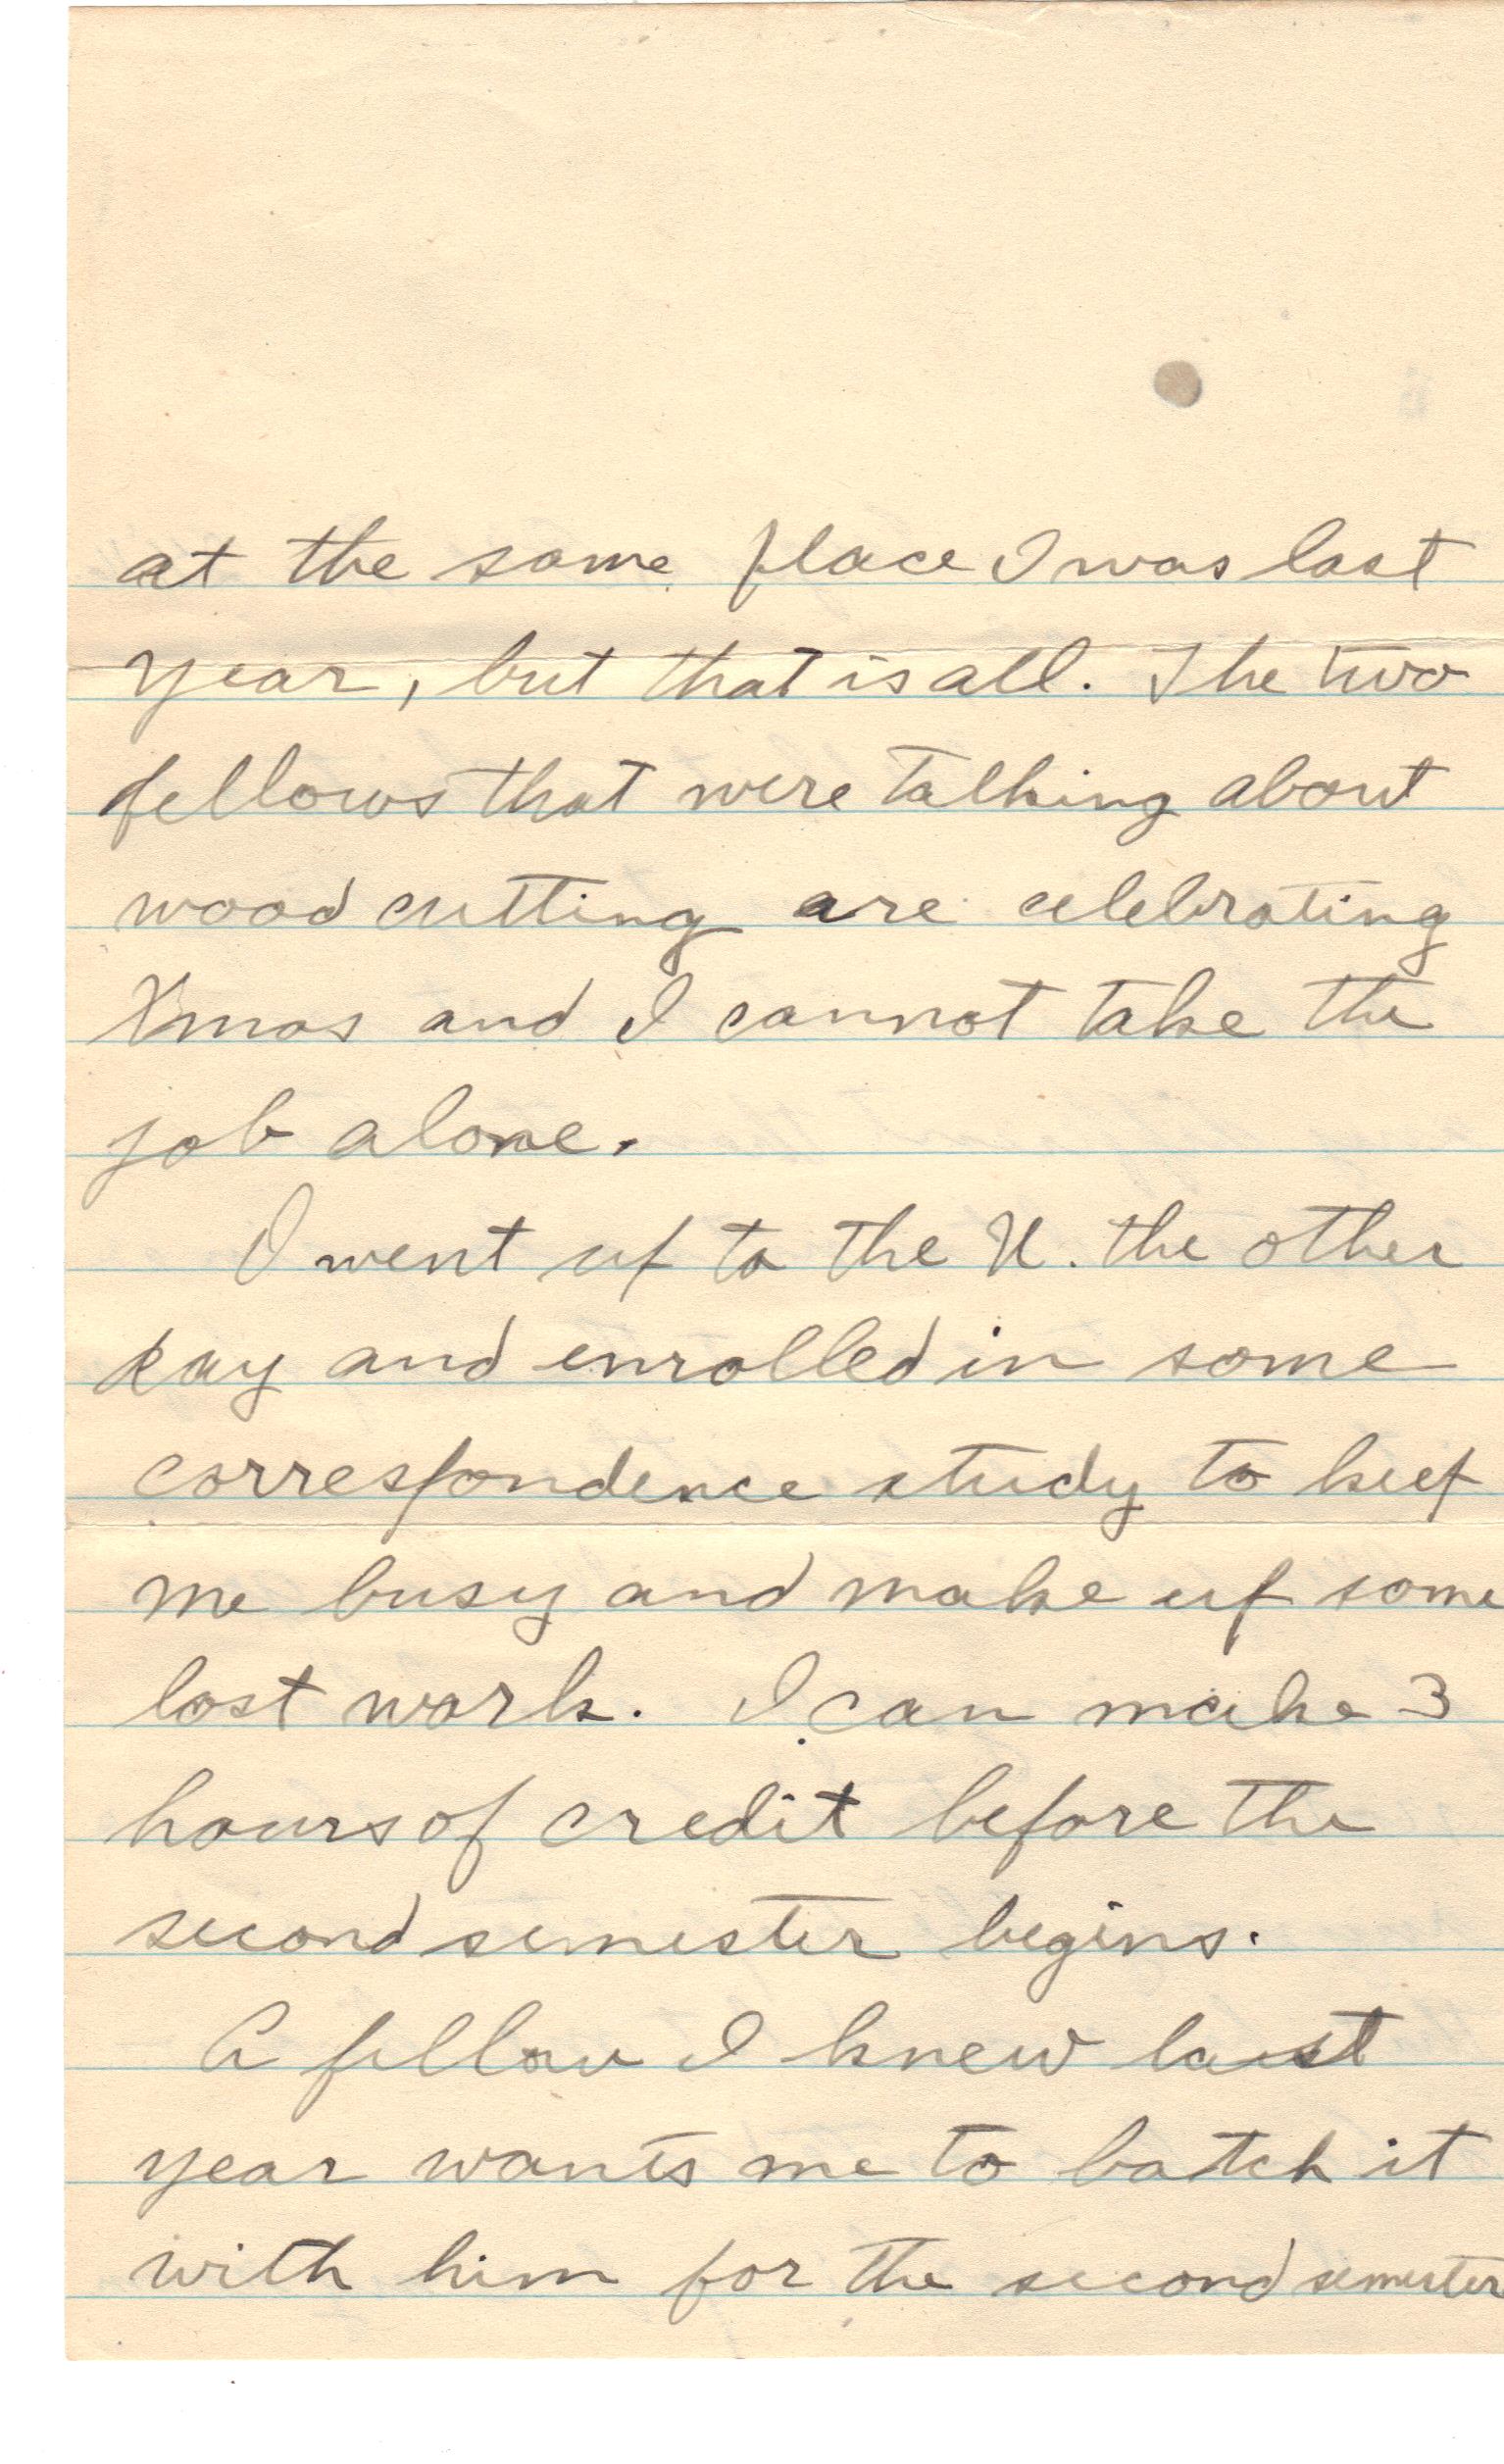 at the same place I was last
year, but that is all. The two
fellows that were talking about
wood cutting are celebrating
Xmas and I cannot take the
job alone.
I went up to the U. the other
day and enrolled in some
correspondence study to keep
me busy and make up some
lost work. I can make 3
hours of credit before the
second semester begins.
A fellow I knew last
year wants me to batch it
with him for the second semester